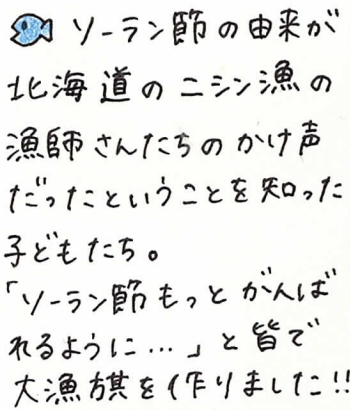 ソーラン節の由来が
北海道のニシン漁の
漁師さんたちのかけ声
だったということを知った
子どもたち。
「ソーラン節もっとがんば
れるように…」と皆で
大漁旗を作りました!!